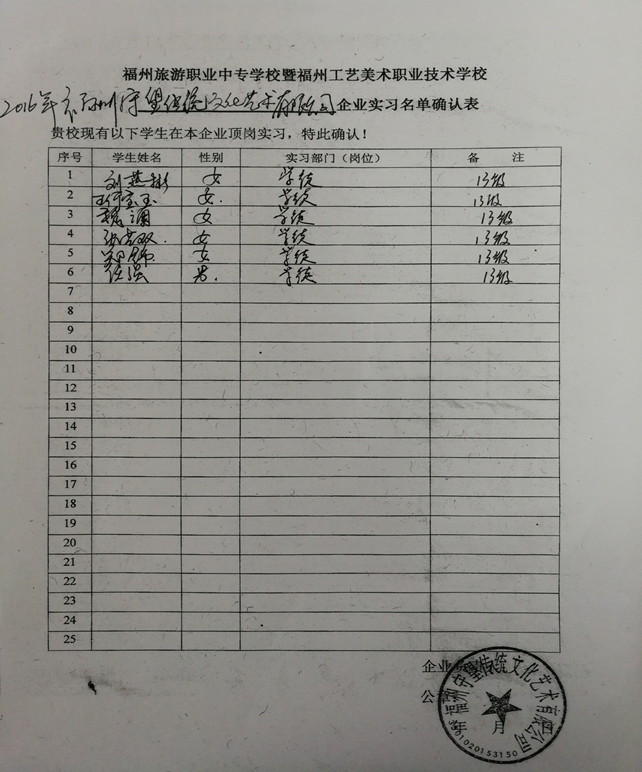 福州旅游职业中专学校暨福州工艺美术职业技术学校
2016年 福州守望传统文化艺术有限公司企业实习名单确认表
贵校现有以下学生在本企业顶岗实习，特此确认！
序号 学生姓名 性别 实习部门（岗位） 备 注
1 女 学徒 13级
2 女 学徒 13级
3 女 学徒 13级
4 女 学徒 13级
5 女 学徒 13级
6 任强 男 学徒 13级
7
8
9
10
11
12
13
14
15
16
17
18
19
20
21
22
23
24
25
企业
公
年 月
传统文化艺术有限公司